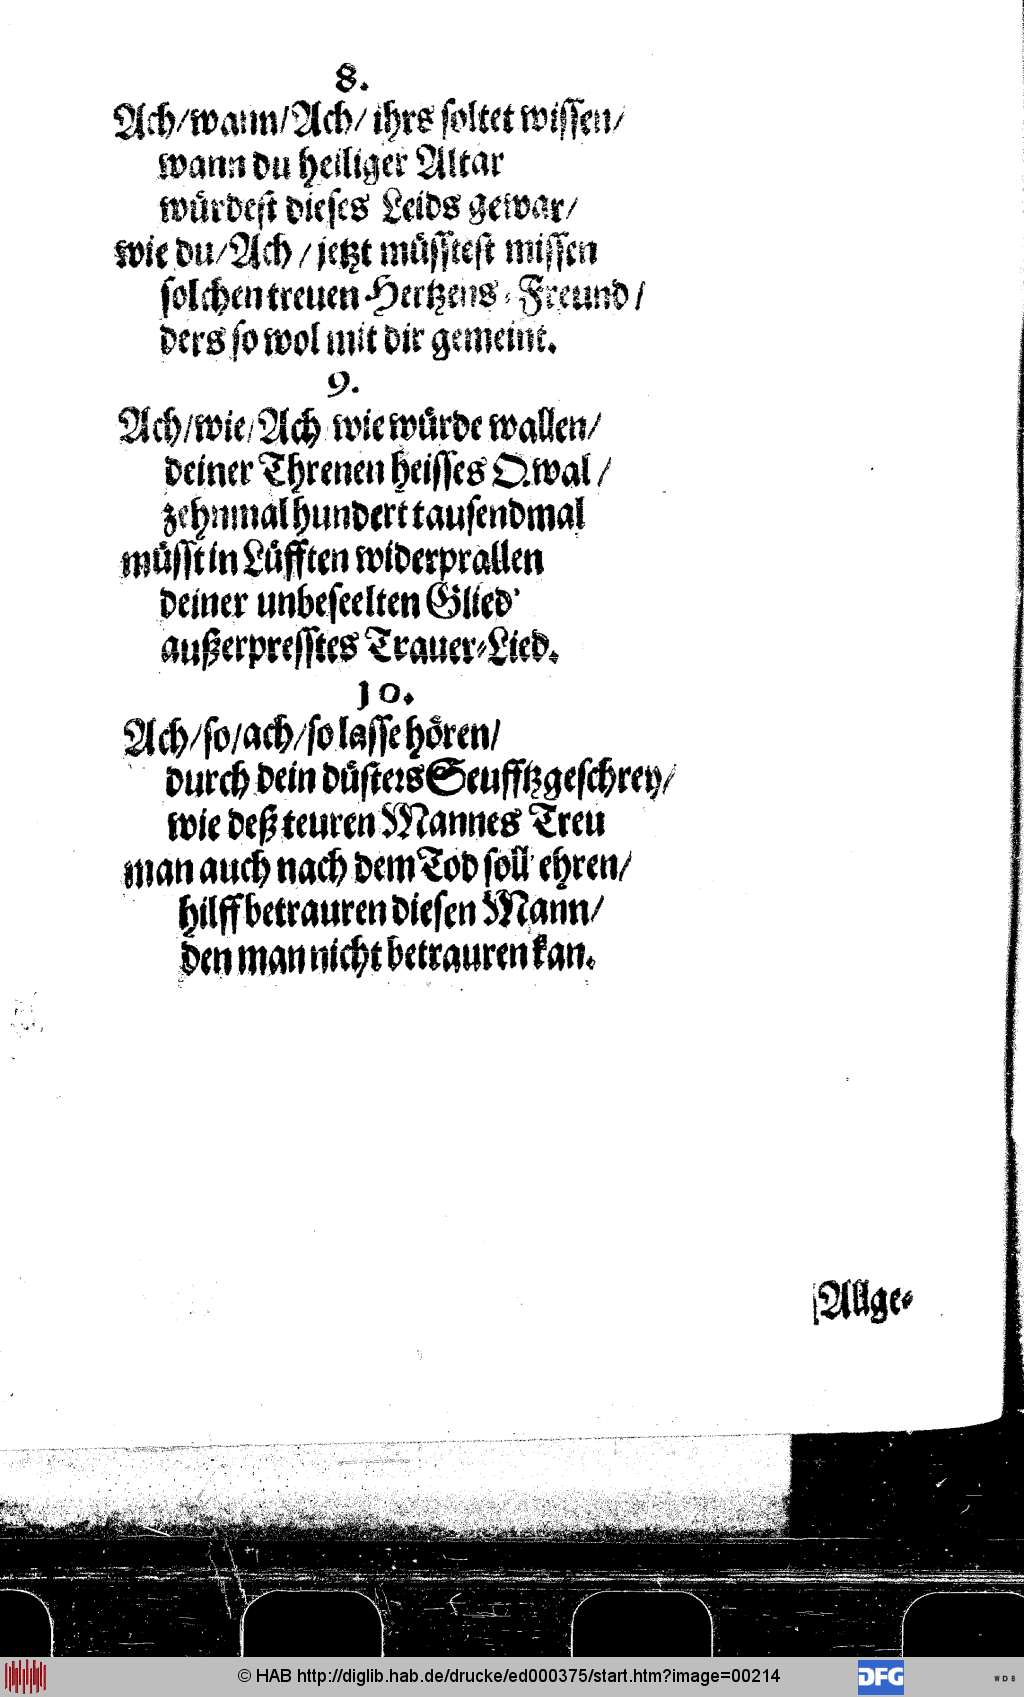 8.
Ach/wann/Ach/ ihrs soltet wissen/
wann du heiliger Altar
würdest dieses Leids gewar/
wie du/Ach / jetzt müsstest missen
solchen treuen Hertzens-Freund /
ders so wol mit dir gemeint.
9.
Ach/wie/Ach wie würde wallen/
deiner Threnen heisses Qwal /
zehnmal hundert tausendmal
müsst in Lüfften widerprallen
deiner unbeseelten Glied'
außerpresstes Trauer-Lied.
10.
Ach/so/ach/so lasse hören/
durch dein düsters Seufftzgeschrey/
wie deß teuren Mannes Treu
man auch nach dem Tod soll' ehren/
hilff betrauren diesen Mann/
den man nicht betrauren kan.
Allge-
© HAB http://diglib.hab.de/drucke/ed000375/start.htm?image=00214
DFG
WDB